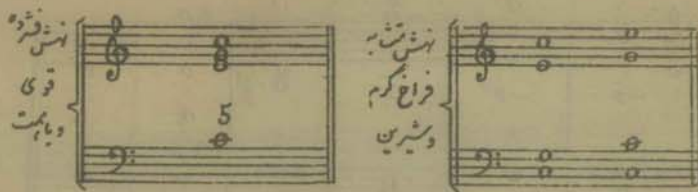 نهش
فراخ گرم
و شیرین
نهش فشرده
قوی
و باهمت
5